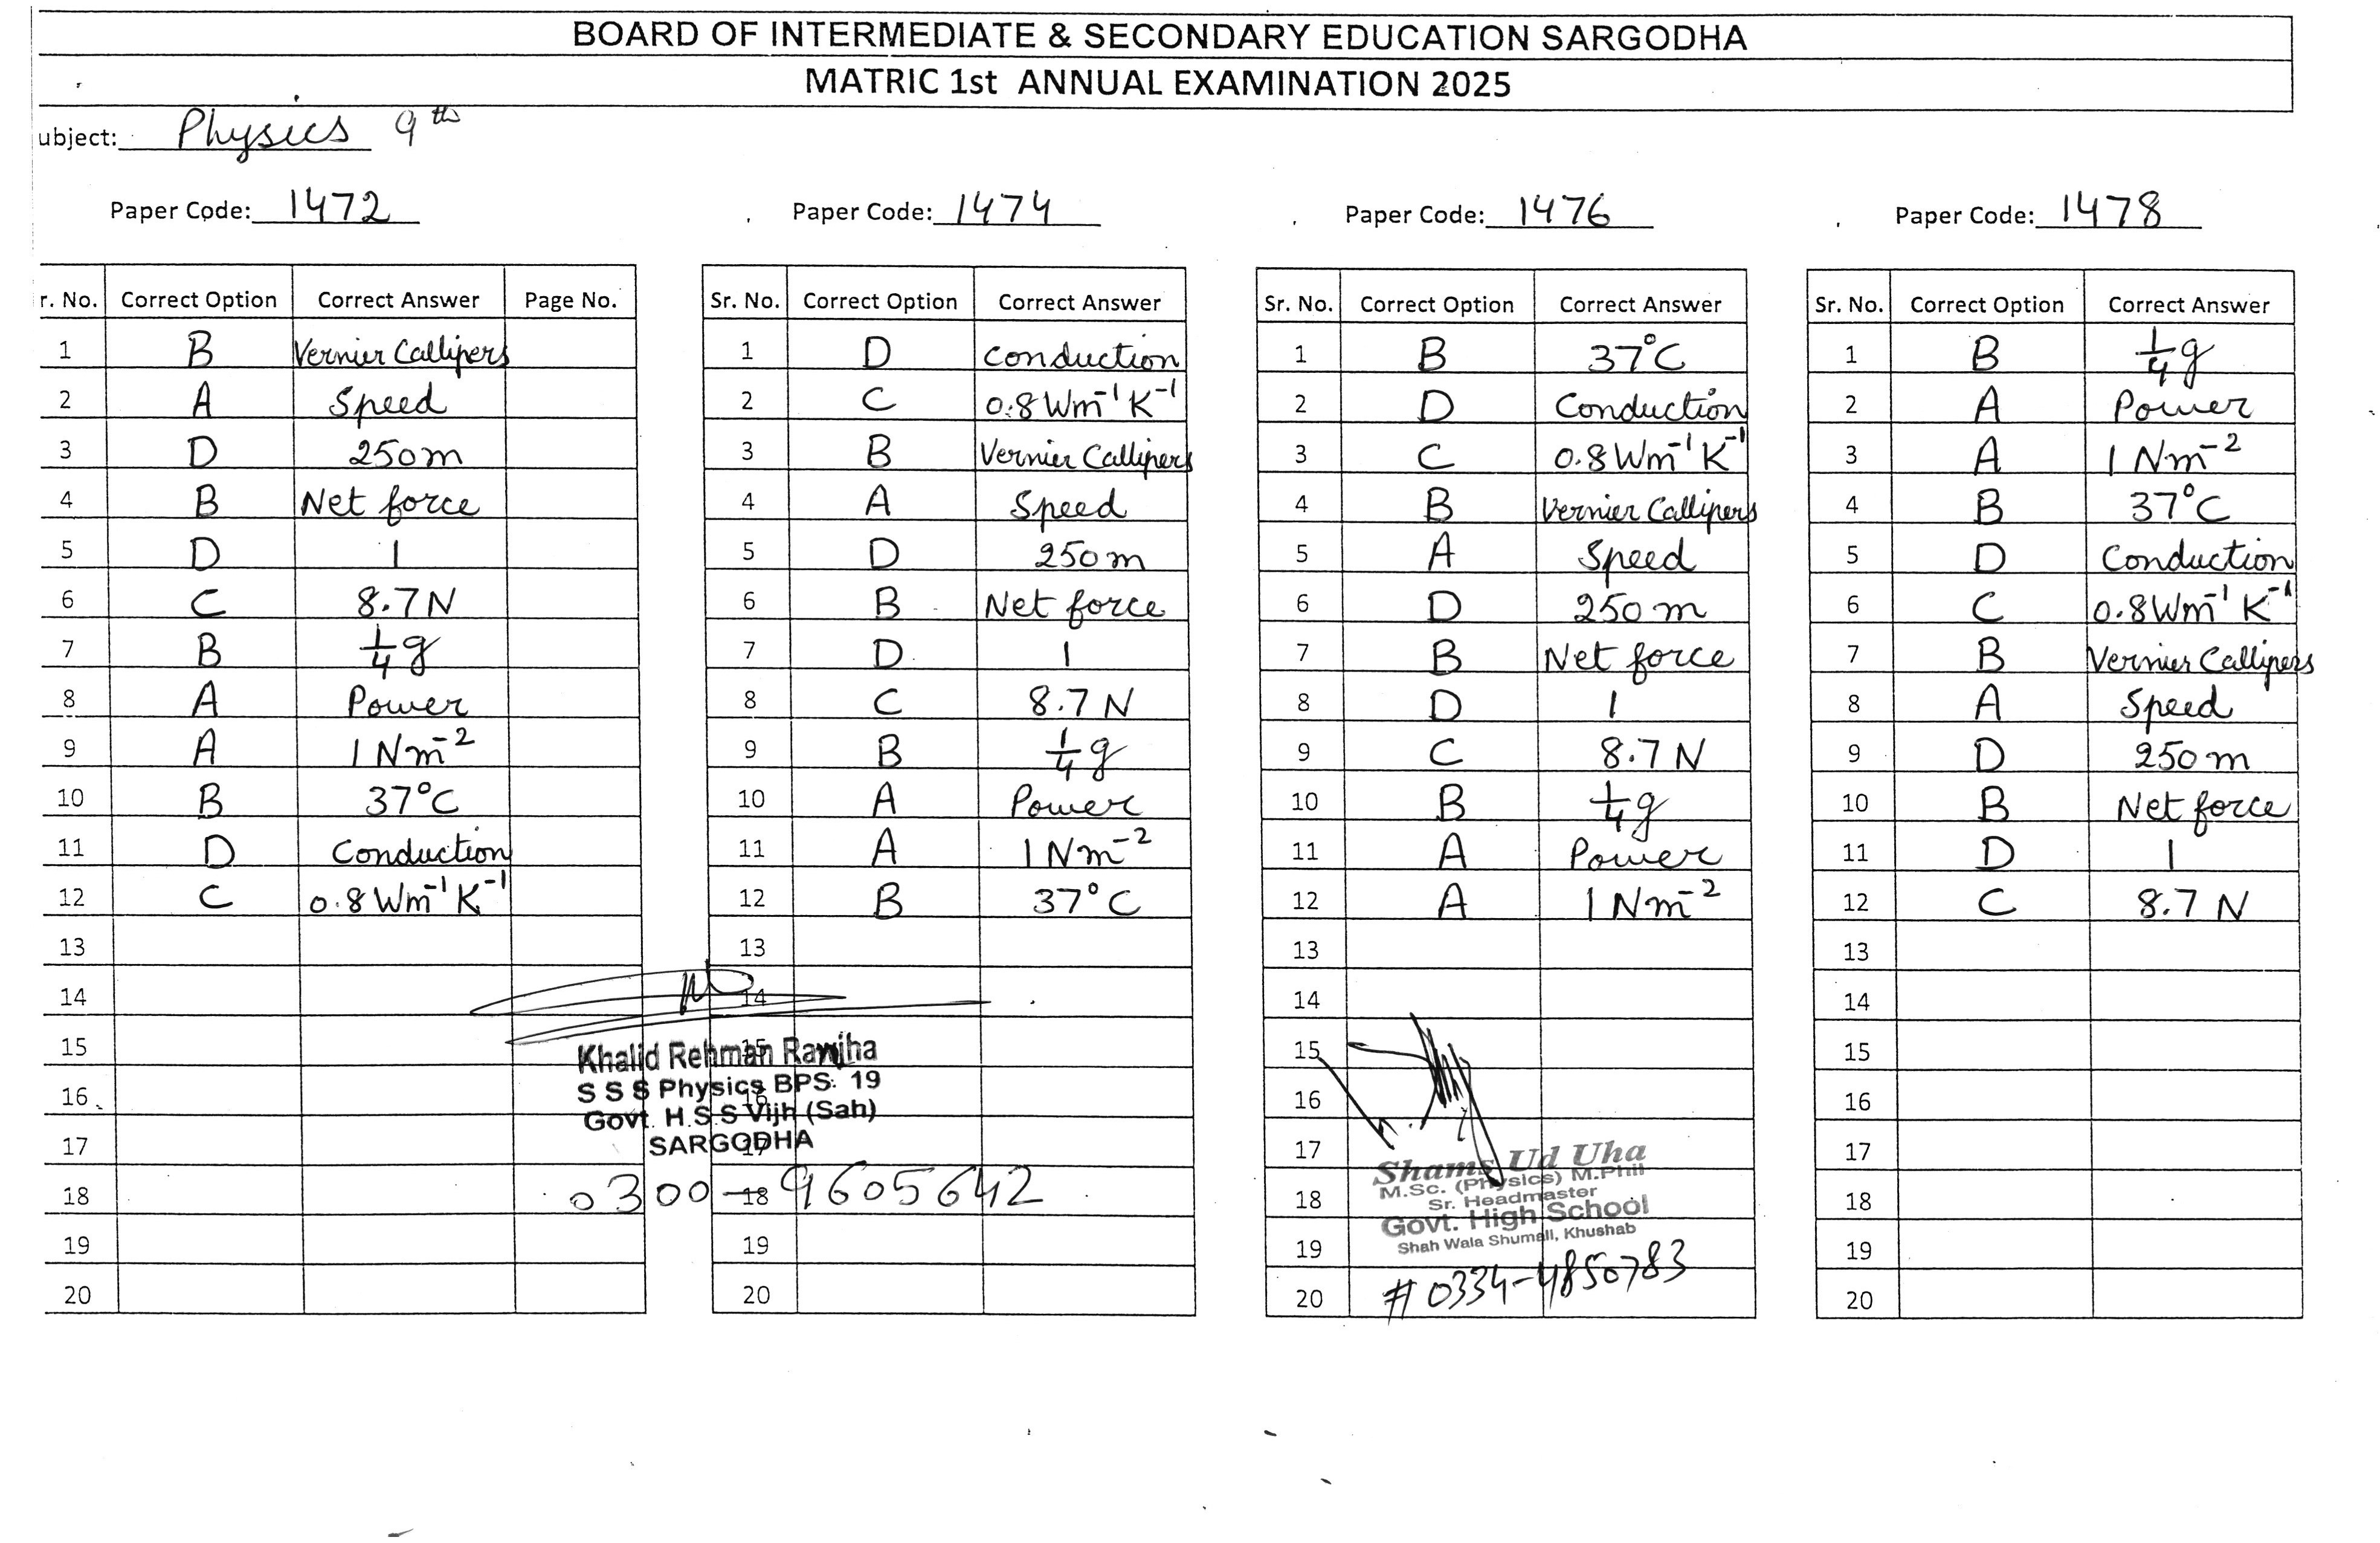 BOARD OF INTERMEDIATE & SECONDARY EDUCATION SARGODHA
MATRIC 1st ANNUAL EXAMINATION 2025
ubject: Physics 9th
Paper Code: 1472
r. No. Correct Option Correct Answer Page No.
1 B Vernier Callipers
2 A Speed
3 D 250m
4 B Net force
5 D 1
6 C 8.7N
7 B 1/4 g
8 A Power
9 A 1 Nm⁻²
10 B 37°C
11 D Conduction
12 C 0.8 Wm⁻¹K⁻¹
13
14
15
16
17
18
19
20
Paper Code: 1474
Sr. No. Correct Option Correct Answer
1 D conduction
2 C 0.8 Wm⁻¹K⁻¹
3 B Vernier Callipers
4 A Speed
5 D 250m
6 B Net force
7 D 1
8 C 8.7 N
9 B 1/4 g
10 A Power
11 A 1 Nm⁻²
12 B 37°C
13
14
15
16
17
18
19
20
Khalid Rehman Ranjha
S S S Physics BPS: 19
Govt. H.S.S Vijh (Sah)
SARGODHA
0300-9605642
Paper Code: 1476
Sr. No. Correct Option Correct Answer
1 B 37°C
2 D Conduction
3 C 0.8 Wm⁻¹K⁻¹
4 B Vernier Callipers
5 A Speed
6 D 250m
7 B Net force
8 D 1
9 C 8.7 N
10 B 1/4 g
11 A Power
12 A 1 Nm⁻²
13
14
15
16
17
18
19
20
Shams Ud Uha
M.Sc. (Physics) M.Phil
Sr. Headmaster
Govt. High School
Shah Wala Shumali, Khushab
# 0334-4850783
Paper Code: 1478
Sr. No. Correct Option Correct Answer
1 B 1/4 g
2 A Power
3 A 1 Nm⁻²
4 B 37°C
5 D Conduction
6 C 0.8 Wm⁻¹K⁻¹
7 B Vernier Callipers
8 A Speed
9 D 250m
10 B Net force
11 D 1
12 C 8.7 N
13
14
15
16
17
18
19
20